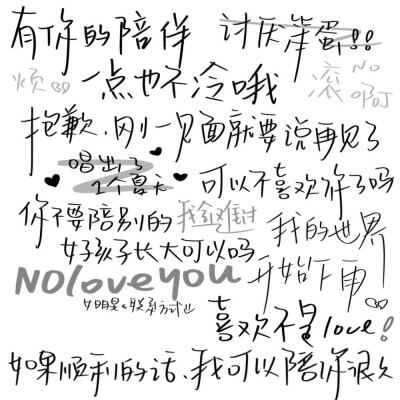 有你的陪伴
讨厌笨蛋!!
烦
一点也不冷哦
滚
NO
啊
抱歉,刚一见面就要说再见了
唱出了
2个夏天
可以不喜欢你了吗
你不要陪别的
我的世界
女孩子长大可以吗
NO love you
开始下雨
女明星の联系方式
喜欢不是love!
如果顺利的话、我可以陪你很久